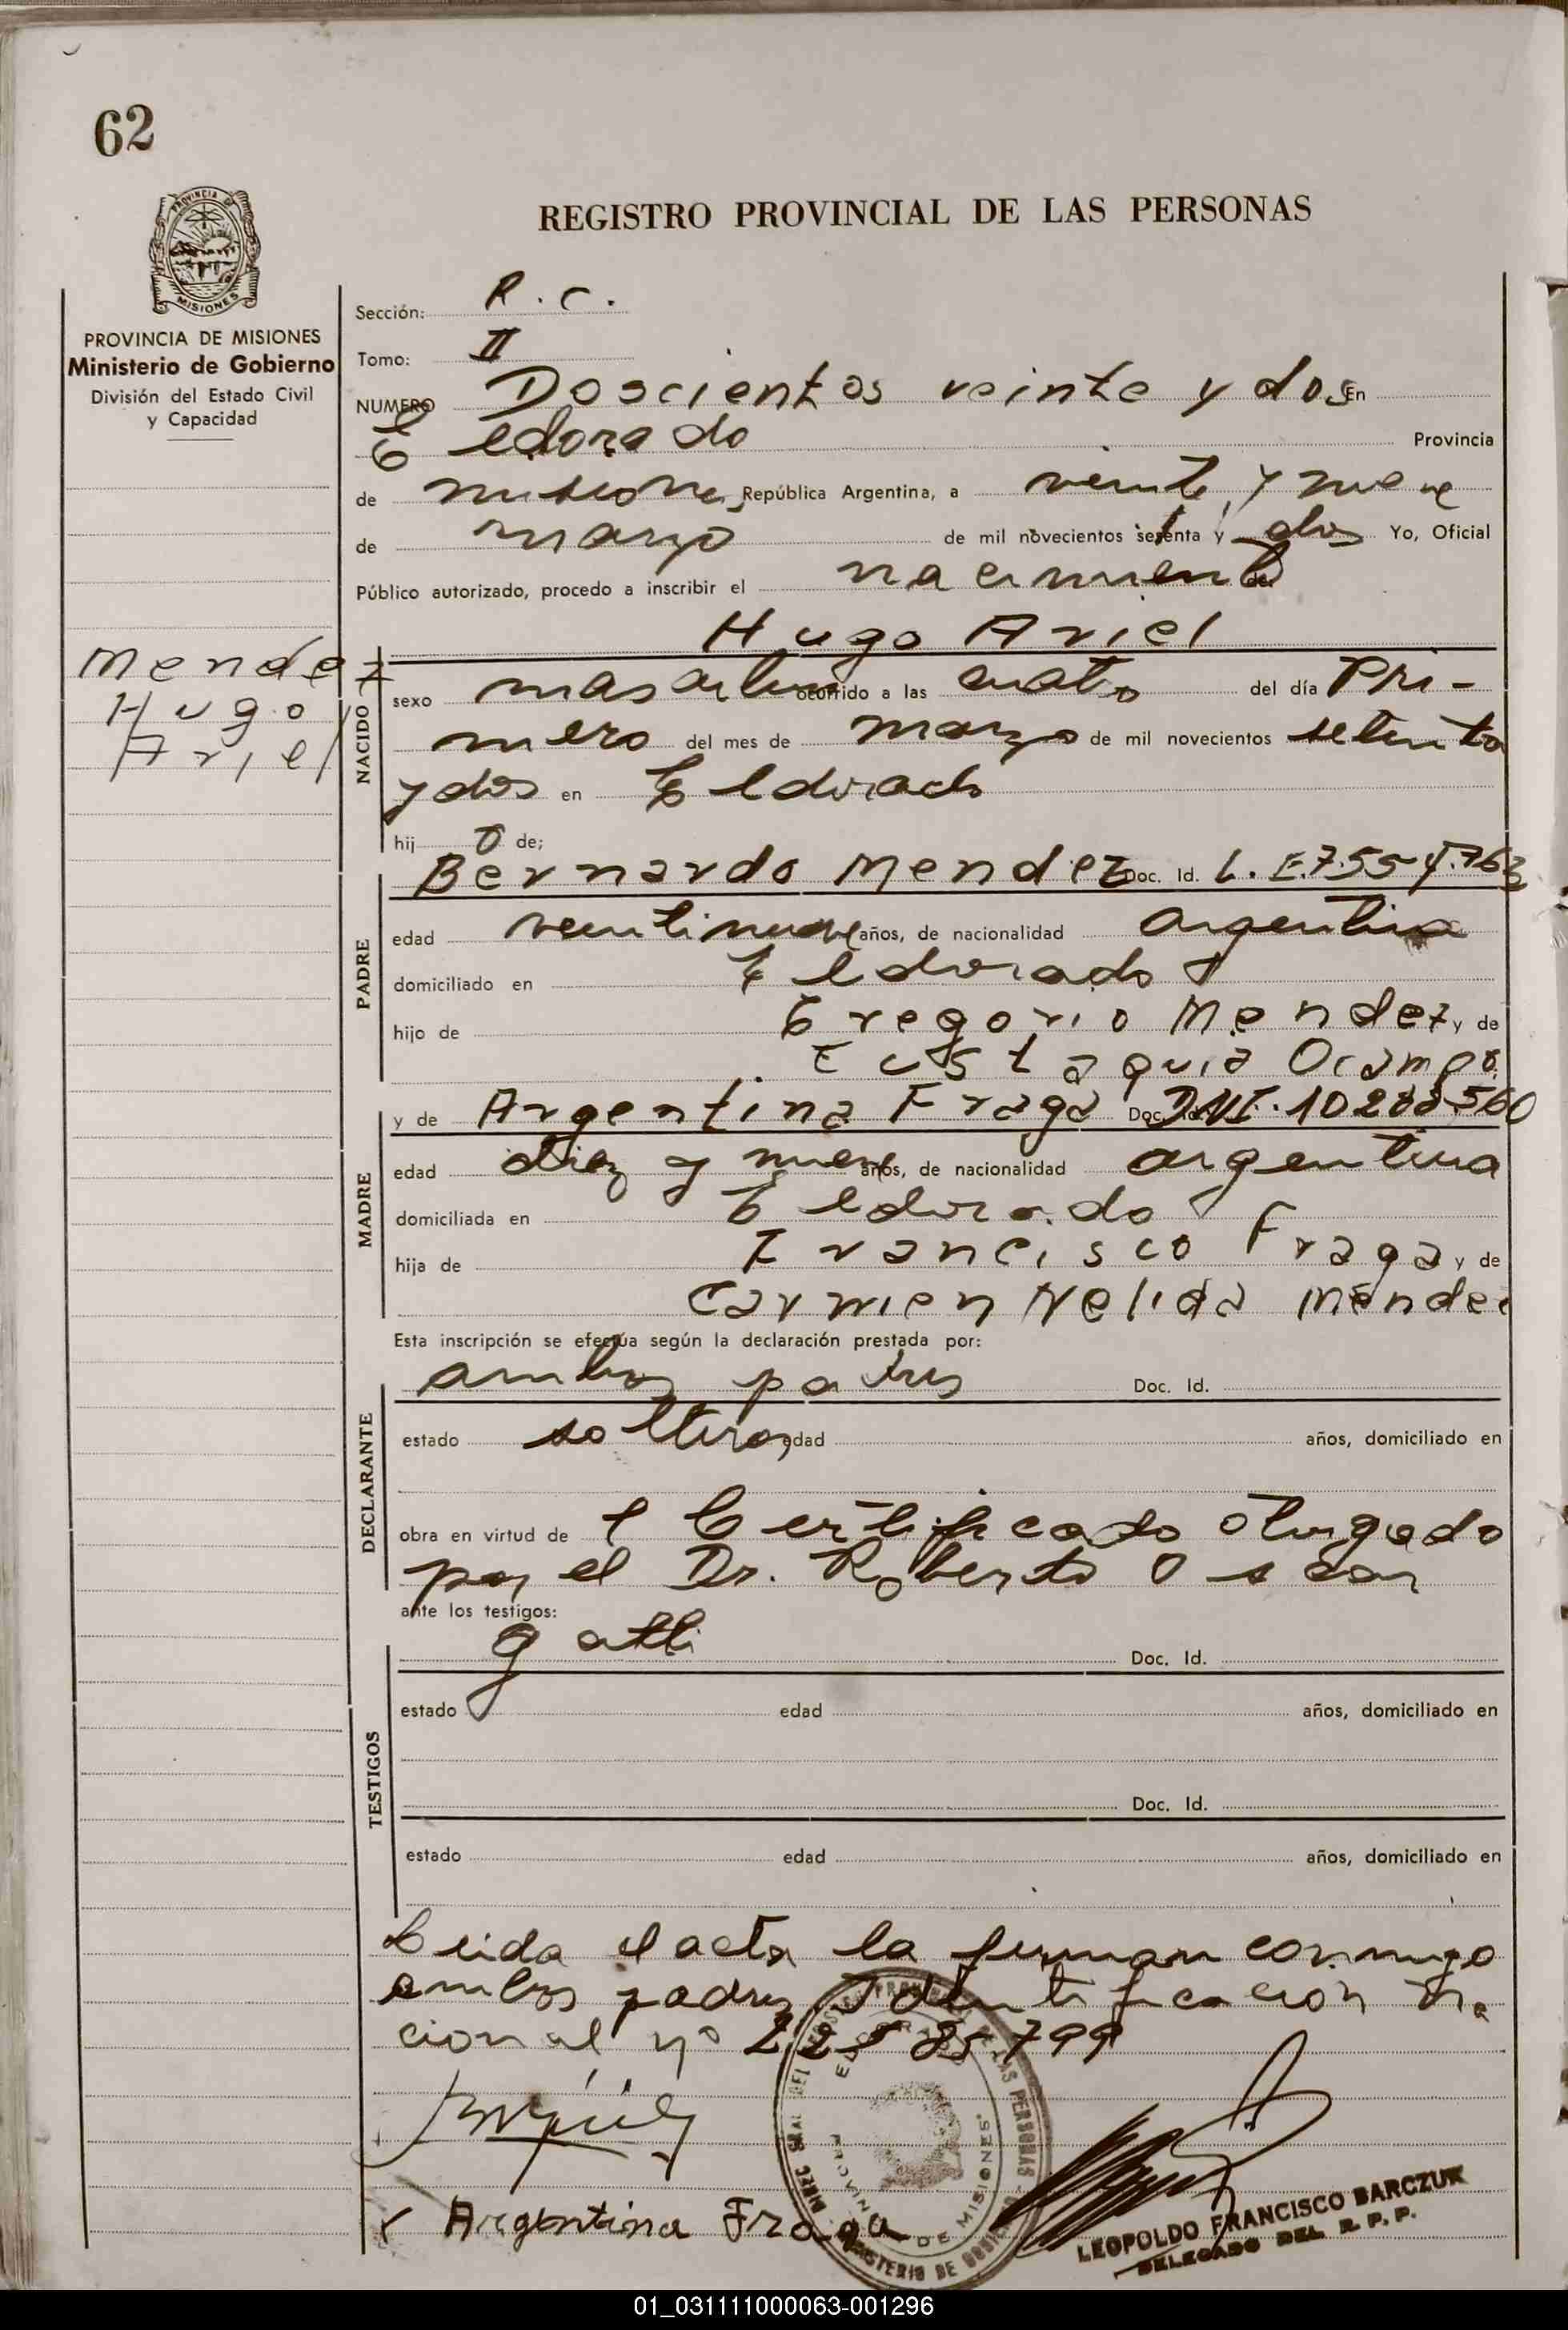 62
PROVINCIA DE
MISIONES
PROVINCIA DE MISIONES
Ministerio de Gobierno
División del Estado Civil
y Capacidad
REGISTRO PROVINCIAL DE LAS PERSONAS
Sección: R. C.
Tomo: II
NUMERO Doscientos veinte y dos En
Eldorado Provincia
de misiones, República Argentina, a veinte y nueve
de marzo de mil novecientos setenta y dos Yo, Oficial
Público autorizado, procedo a inscribir el nacimiento de
Hugo Ariel
Mendez
Hugo
Ariel
NACIDO
sexo masculino ocurrido a las cuatro del día Pri-
mero del mes de marzo de mil novecientos setenta
y dos en Eldorado
hij o de;
PADRE
Bernardo Mendez Doc. Id. L. E. 7.554.763
edad veintinueve años, de nacionalidad argentina
domiciliado en Eldorado
hijo de Gregorio Mendez y de
Eustaquia Ocampo
MADRE
y de Argentina Fraga Doc. Id. DNI. 10288560
edad diez y nueve años, de nacionalidad argentina
domiciliada en Eldorado
hija de Francisco Fraga y de
Carmen Nelida Méndez
Esta inscripción se efectúa según la declaración prestada por:
DECLARANTE
ambos padres Doc. Id.
estado solteros edad años, domiciliado en
obra en virtud de l Certificado otorgado
por el Dr. Roberto Oscar
ante los testigos:
gatti Doc. Id.
TESTIGOS
estado edad años, domiciliado en
Doc. Id.
estado edad años, domiciliado en
Leida el acta la firman conmigo
ambos padres Identificación na
cional nº 22585799
x Argentina Fraga
ELDORADO
PROVINCIA DE MISIONES
MINISTERIO DE GOBIERNO
LEOPOLDO FRANCISCO BARCZUK
DELEGADO DEL R. P. P.
01_031111000063-001296